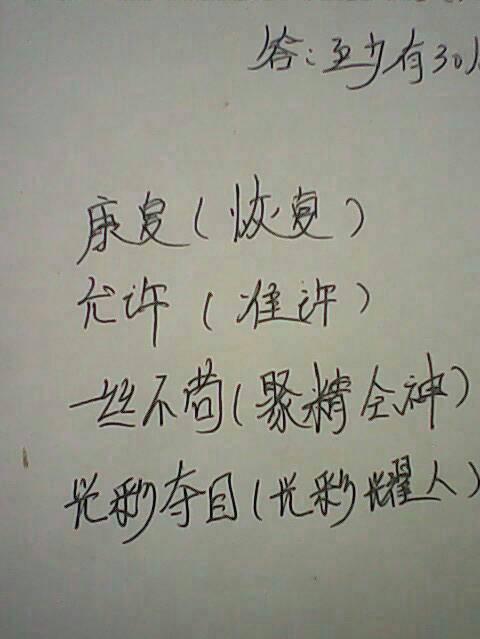 答:至少有30
康复(恢复)
允许(准许)
一丝不苟(聚精会神)
光彩夺目(光彩耀人)